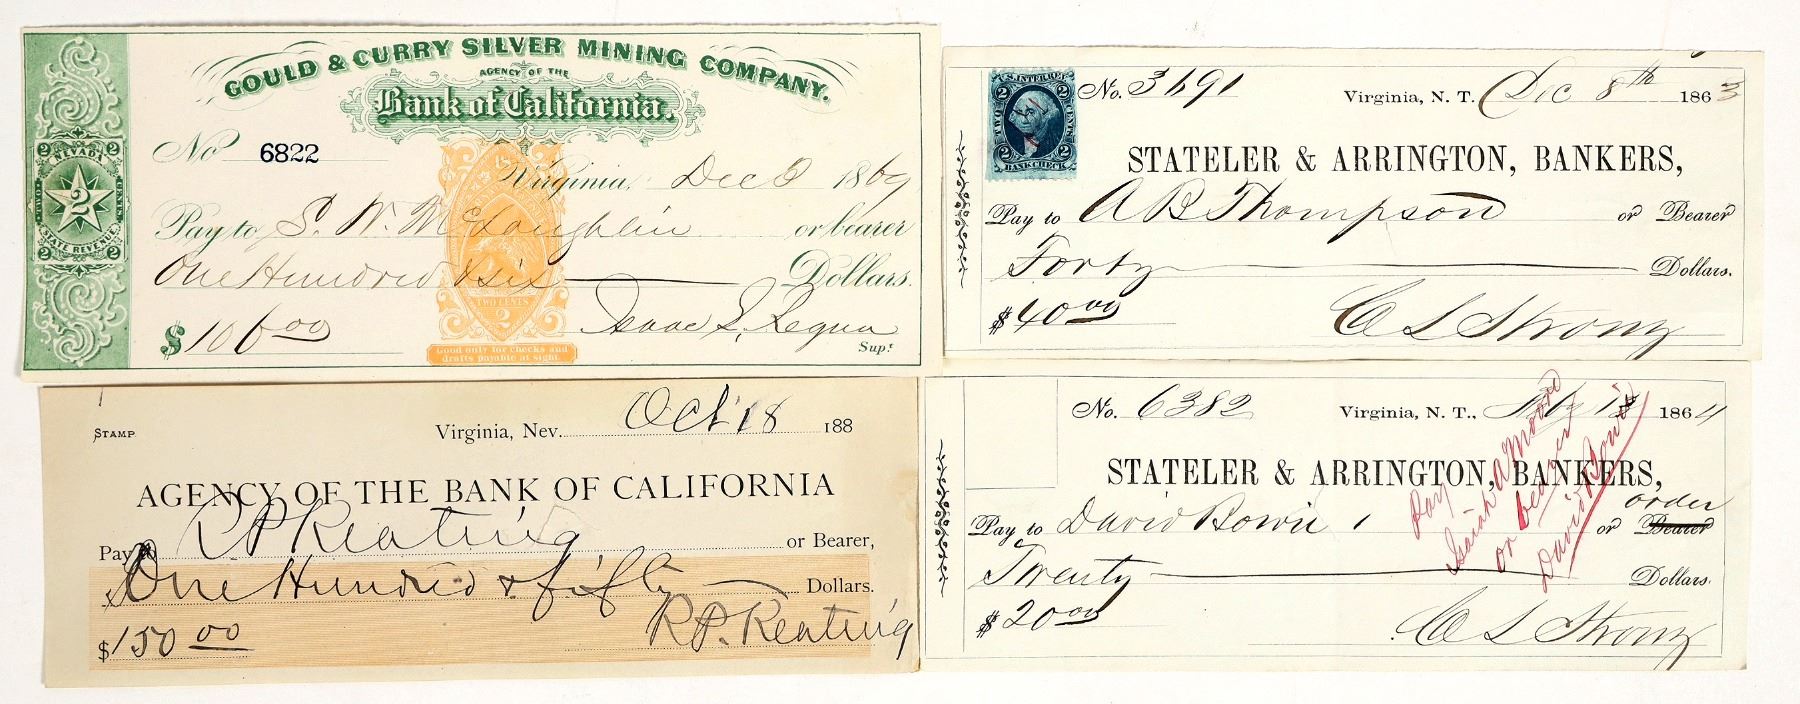 GOULD & CURRY SILVER MINING COMPANY.
AGENCY OF THE
Bank of California.
No 6822
Virginia, Dec 1869
Pay to S. W. McLaughlin or bearer
One Hundred & six Dollars.
$ 106.00 Isaac L. Requa
Supt
2 2
NEVADA
TWO 2 CENTS
STATE REVENUE
2 2
TWO CENTS
2
Good only for checks and
drafts payable at sight.
U.S. INTER. REV.
2 2
TWO CENTS
2 2
BANK CHECK
No. 3691 Virginia, N. T. Dec 8th 1863
STATELER & ARRINGTON, BANKERS,
Pay to A B Thompson or Bearer
Forty Dollars.
$ 40.00 C L Strong
STAMP Virginia, Nev. Oct 18 188
AGENCY OF THE BANK OF CALIFORNIA
Pay to R P Keating or Bearer,
One Hundred & fifty Dollars.
$ 150 00 R P. Keating
No. 6382 Virginia, N. T., 1864
STATELER & ARRINGTON, BANKERS,
Pay to David Bowie or Bearer order
Twenty Dollars.
$ 20.00 C L Strong
Pay
Isaiah A Moore
or bearer
David Bowie